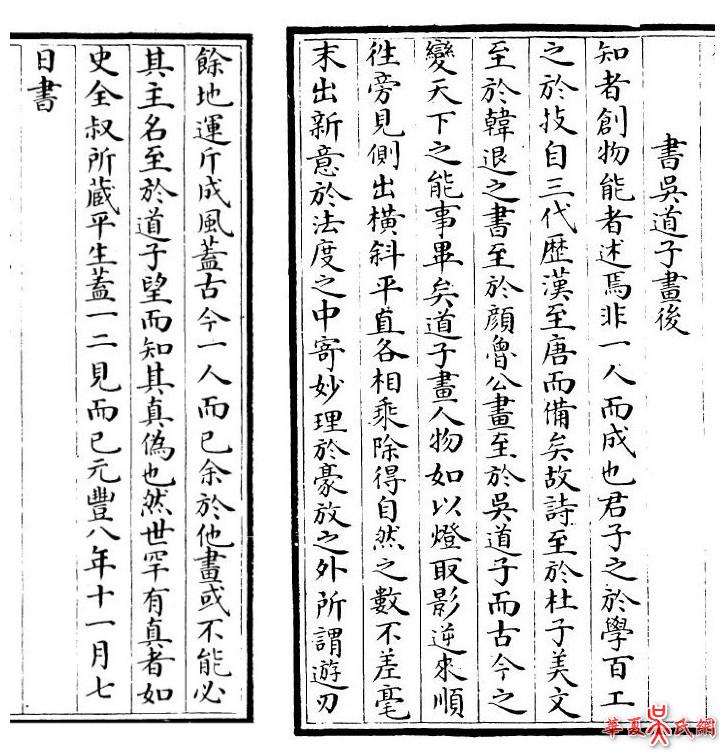 書吳道子畫後
知者創物能者述焉非一人而成也君子之於學百工
之於技自三代歷漢至唐而備矣故詩至於杜子美文
至於韓退之書至於顏魯公畫至於吳道子而古今之
變天下之能事畢矣道子畫人物如以燈取影逆來順
往旁見側出橫斜平直各相乘除得自然之數不差毫
末出新意於法度之中寄妙理於豪放之外所謂遊刃
餘地運斤成風蓋古今一人而已余於他畫或不能必
其主名至於道子望而知其真偽也然世罕有真者如
史全叔所藏平生蓋一二見而已元豐八年十一月七
日書
華夏吳氏網